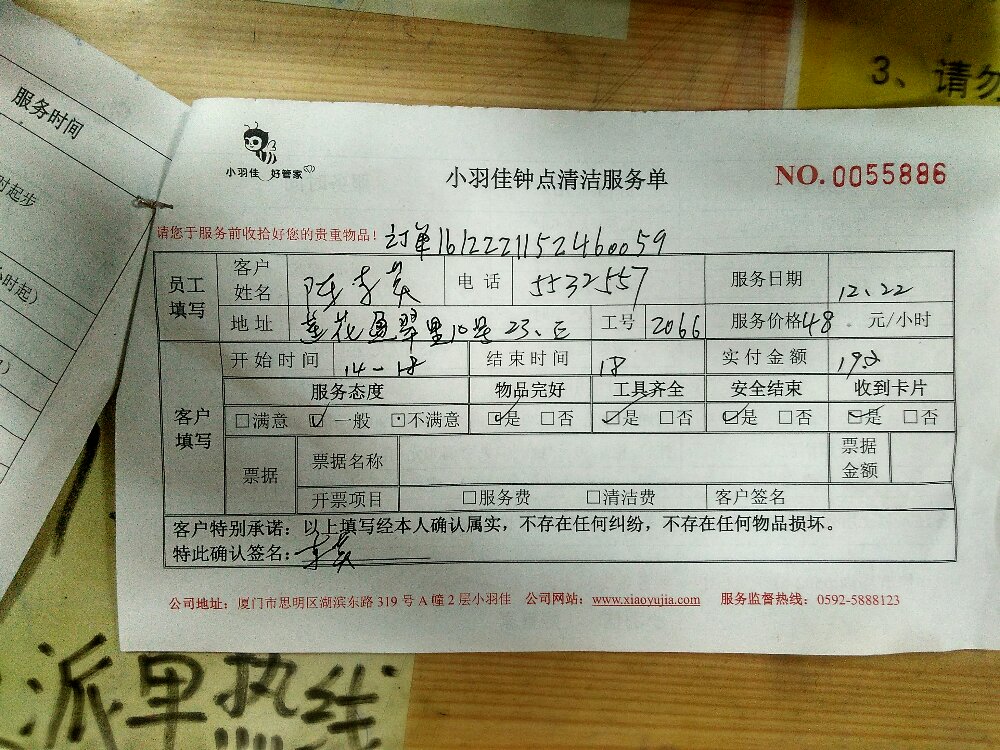 服务时间
时起步
小时起）
3、请勿
小羽佳 好管家
小羽佳钟点清洁服务单
NO. 0055886
请您于服务前收拾好您的贵重物品！ 订单161222115246 0059
员工填写 客户姓名 陈 电话 5532557 服务日期 12、22
地址 莲花 翠里10号 23、E 工号 2066 服务价格48 元/小时
开始时间 14-18 结束时间 18 实付金额 192
客户填写 服务态度 物品完好 工具齐全 安全结束 收到卡片
□满意 ☑一般 □不满意 ☑是 □否 ☑是 □否 ☑是 □否 ☑是 □否
票据 票据名称 票据金额
开票项目 □服务费 □清洁费 客户签名
客户特别承诺：以上填写经本人确认属实，不存在任何纠纷，不存在任何物品损坏。
特此确认签名：
公司地址：厦门市思明区湖滨东路 319 号 A 幢 2 层小羽佳 公司网站：www.xiaoyujia.com 服务监督热线：0592-5888123
派单热线